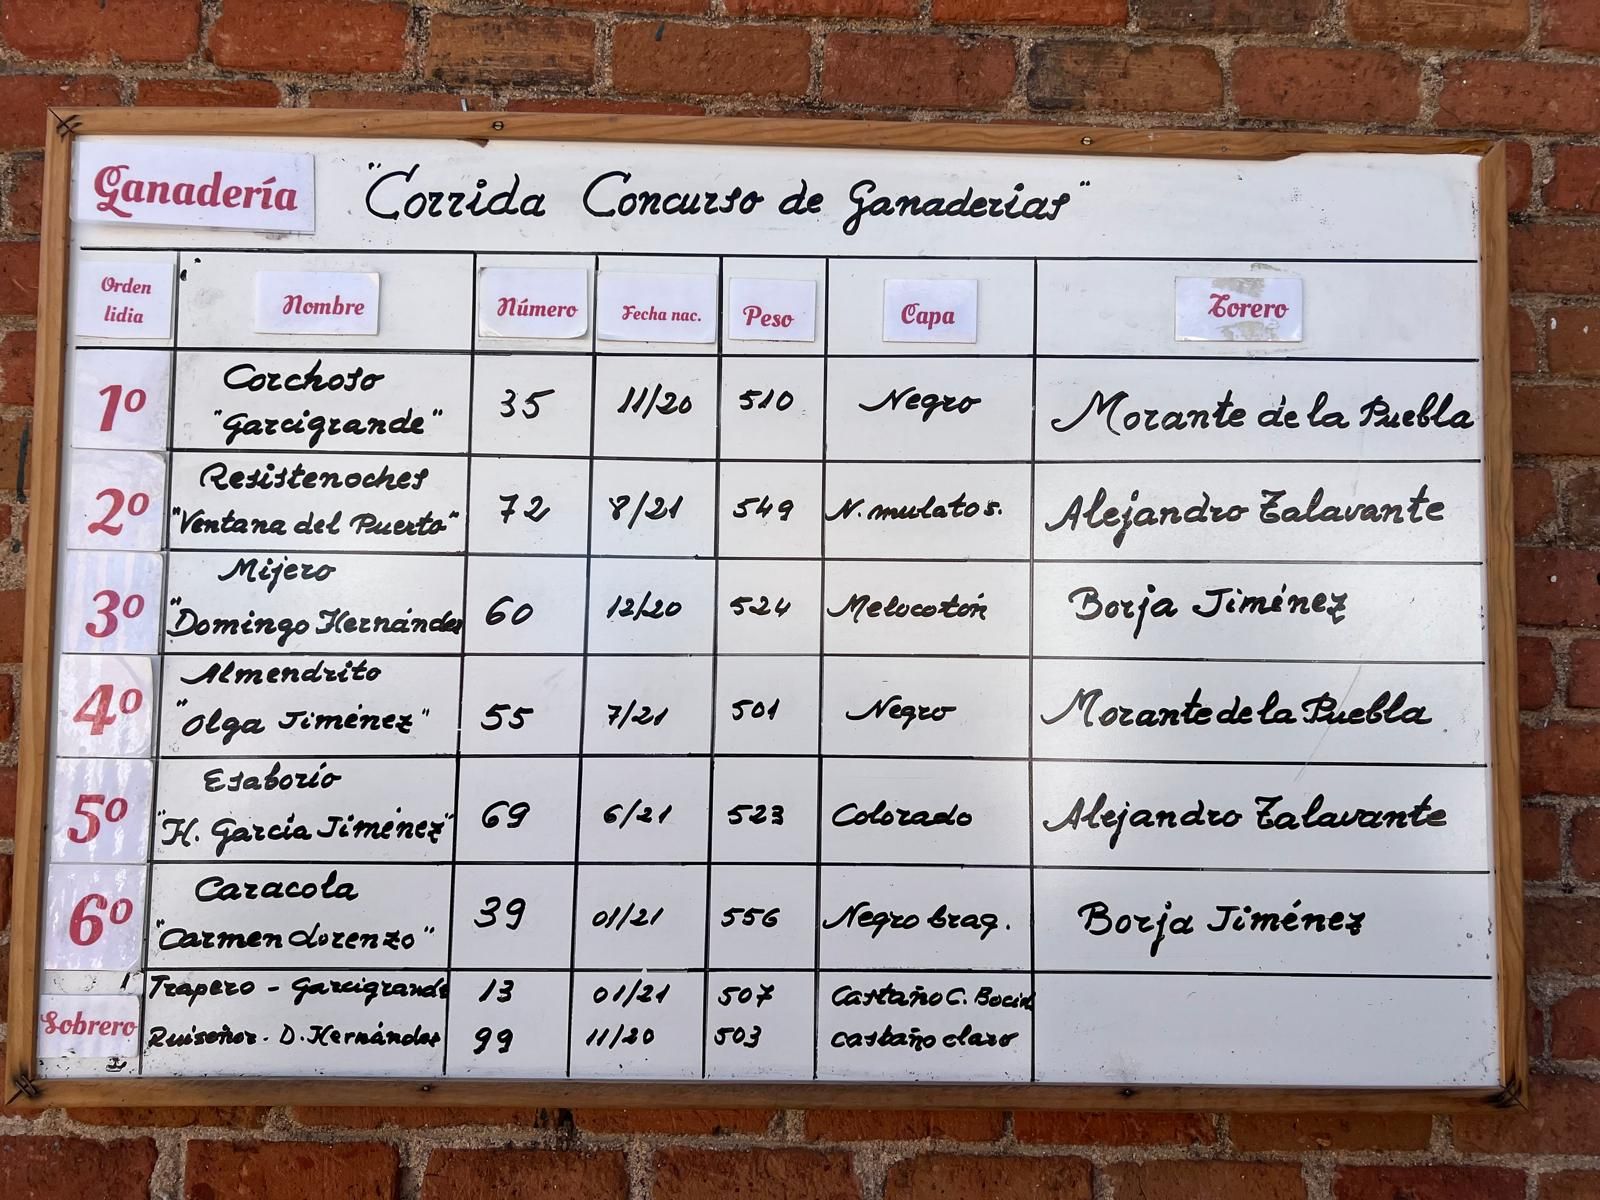 Ganadería "Corrida Concurso de Ganaderias"
Orden lidia Nombre Número Fecha nac. Peso Capa Torero
1º Corchoso "Garcigrande" 35 11/20 510 Negro Morante de la Puebla
2º Resistenoches "Ventana del Puerto" 72 8/21 549 N. mulato s. Alejandro Talavante
3º Mijero "Domingo Hernández 60 12/20 524 Melocotón Borja Jiménez
4º Almendrito "Olga Jiménez" 55 7/21 501 Negro Morante de la Puebla
5º Esaborío "H. García Jiménez" 69 6/21 523 Colorado Alejandro Talavante
6º Caracola "Carmen Lorenzo" 39 01/21 556 Negro brag. Borja Jiménez
Sobrero
1 Trapero - Garcigrande 13 01/21 507 Castaño C. Bocid
2 Ruiseñor - D. Hernández 99 11/20 503 castaño claro